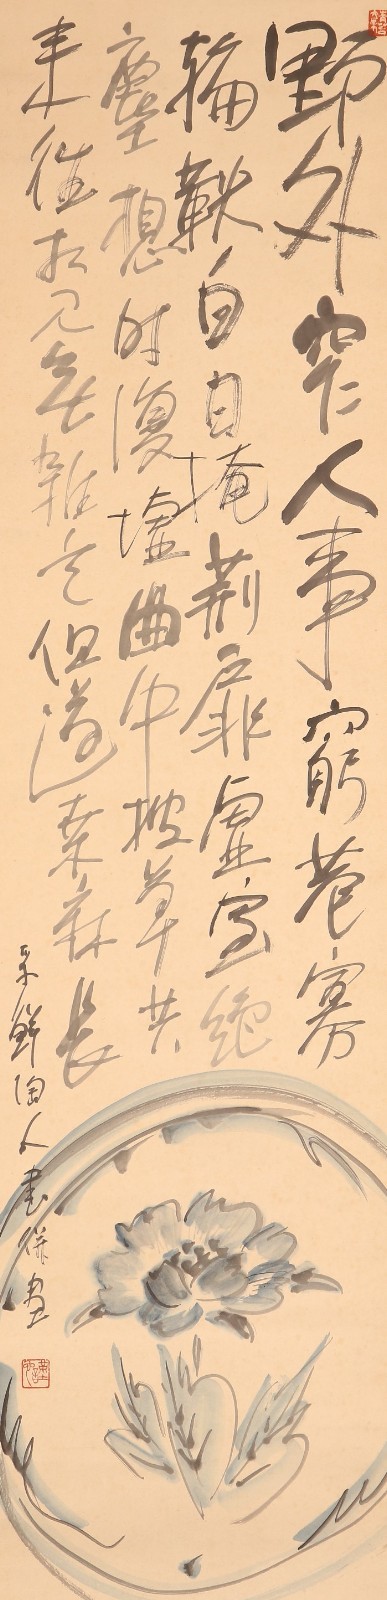 野外罕人事窮巷寡
輪鞅白日掩荊扉虛室絕
塵想时復墟曲中披草共
来往相見無雜言但道桑麻長
鮮陶人書併畫